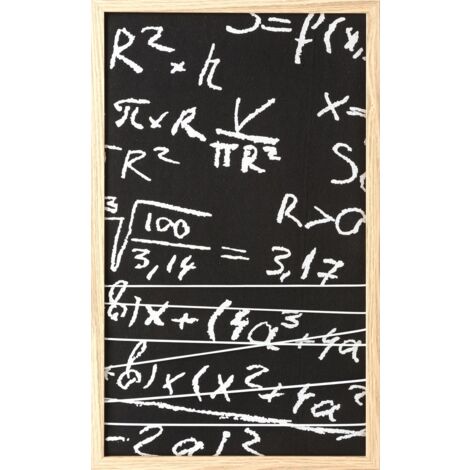 S=f(x,
R² × h
πxR V/πR² x=
R² S
R>0
³√100/3,14 = 3,17
b)x+(4a³+4a
b)x(x²+4a²
-2a)²